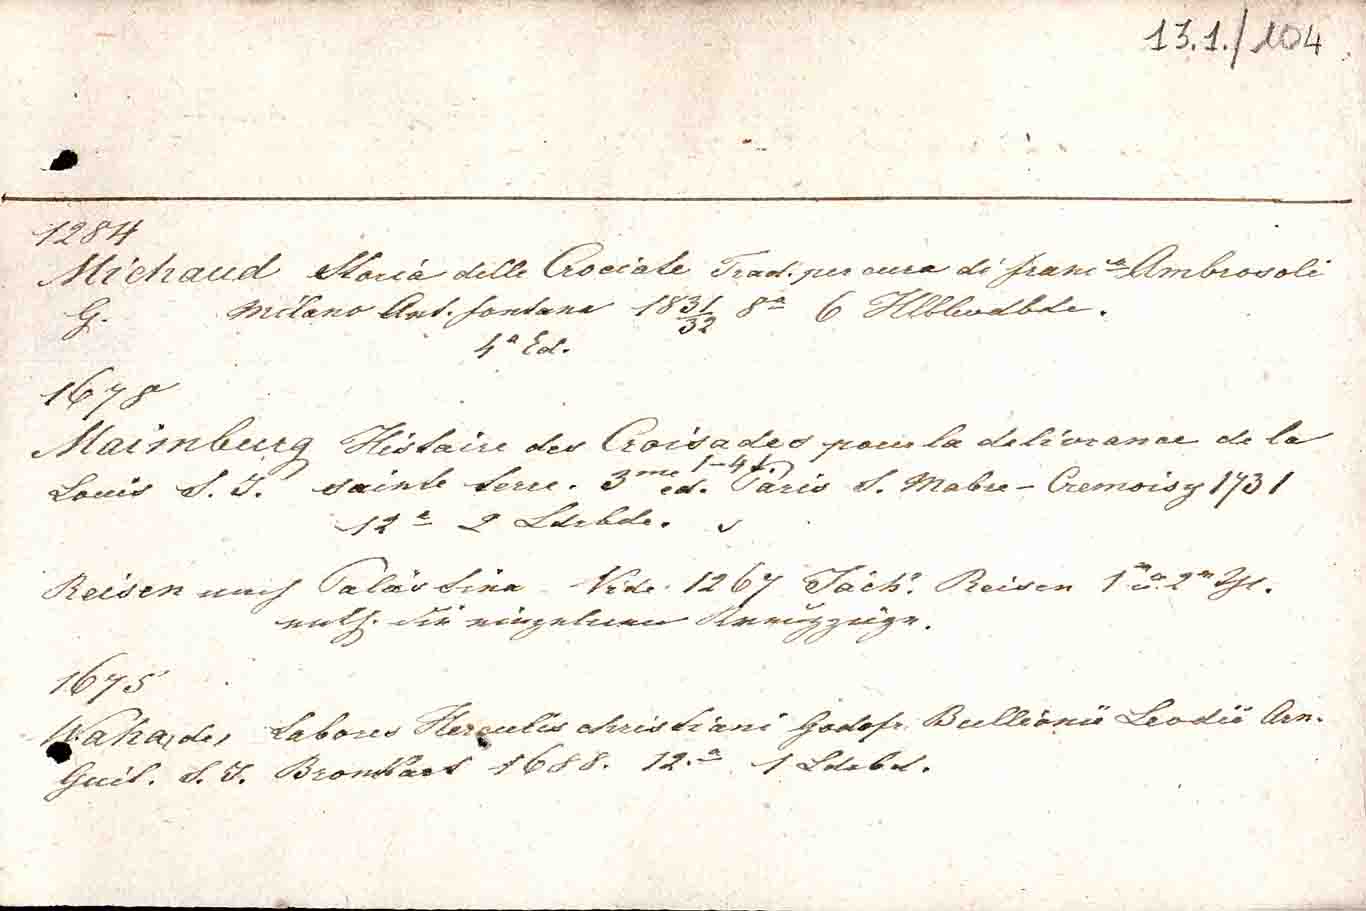 13.1./104
1284
Michaud Storia delle Crociate Trad. per cura di Franc.ᵃ Ambrosoli
G. Milano Ant. Fontana 1831/32 8ᵃ 6 Hlblwdbde.
4ᵃ Ed.
1678
Maimburg Histoire des Croisades pour la delivrance de la
Louis S. J. sainte terre. 3me ed. 1-4 t. Paris S. Mabre-Cremoisy 1731
12ᵃ 2 Ldrbde.
Reisen nach Palästina Vide. 1267 Jäch. Reisen 1n u. 2n Thl.
enth. die einzelnen Kreuzzüge.
1675
Waha, de, Labores Herculis christiani Godefr. Bullionii Leodii Arn.
Guil. S. J. Bronkart 1688. 12.ᵃ 1 Ldrbd.